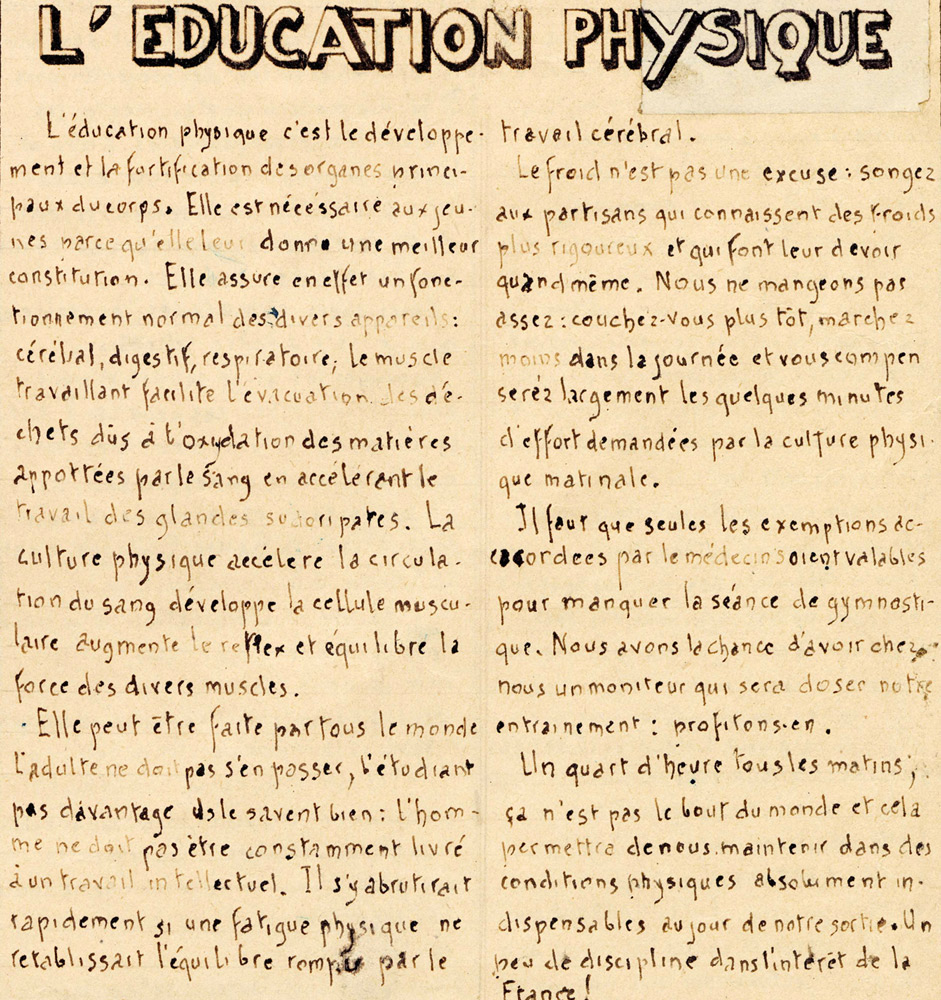 L'EDUCATION PHYSIQUE
L'éducation physique c'est le développe-
ment et la fortification des organes princi-
paux du corps. Elle est nécéssaire aux jeu-
nes parce qu'elle leur donne une meilleur
constitution. Elle assure en effet un fonc-
tionnement normal des divers appareils:
cérébal, digestif, respiratoire, Le muscle
travaillant facilite l'évacuation des dé-
chets dûs à l'oxydation des matières
apportées par le sang en accélérant le
travail des glandes sudoripares. La
culture physique accélère la circula-
tion du sang développe la cellule muscu-
laire augmente le reflex et équilibre la
force des divers muscles.
Elle peut être faite par tous le monde
L'adulte ne doit pas s'en passer, l'étudiant
pas davantage ils le savent bien: l'hom-
me ne doit pas être constamment livré
à un travail intellectuel. Il s'y abrutirait
rapidement si une fatigue physique ne
retablissait l'équilibre rompu par le
travail cérébral.
Le froid n'est pas une excuse: songez
aux partisans qui connaissent des froids
plus rigoureux et qui font leur devoir
quand même. Nous ne mangeons pas
assez: couchez-vous plus tôt, marchez
moins dans la journée et vous compen
serez largement les quelques minutes
d'effort demandées par la culture physi-
que matinale.
Il faut que seules les exemptions ac-
cordees par le médecin soient valables
pour manquer la séance de gymnasti-
que. Nous avons la chance d'avoir chez
nous un moniteur qui sera doser notre
entrainement: profitons-en.
Un quart d'heure tous les matins,
ça n'est pas le bout du monde et cela
permettra de nous maintenir dans des
conditions physiques absolument in-
dispensables au jour de notre sortie. Un
peu de discipline dans l'intérêt de la
France!